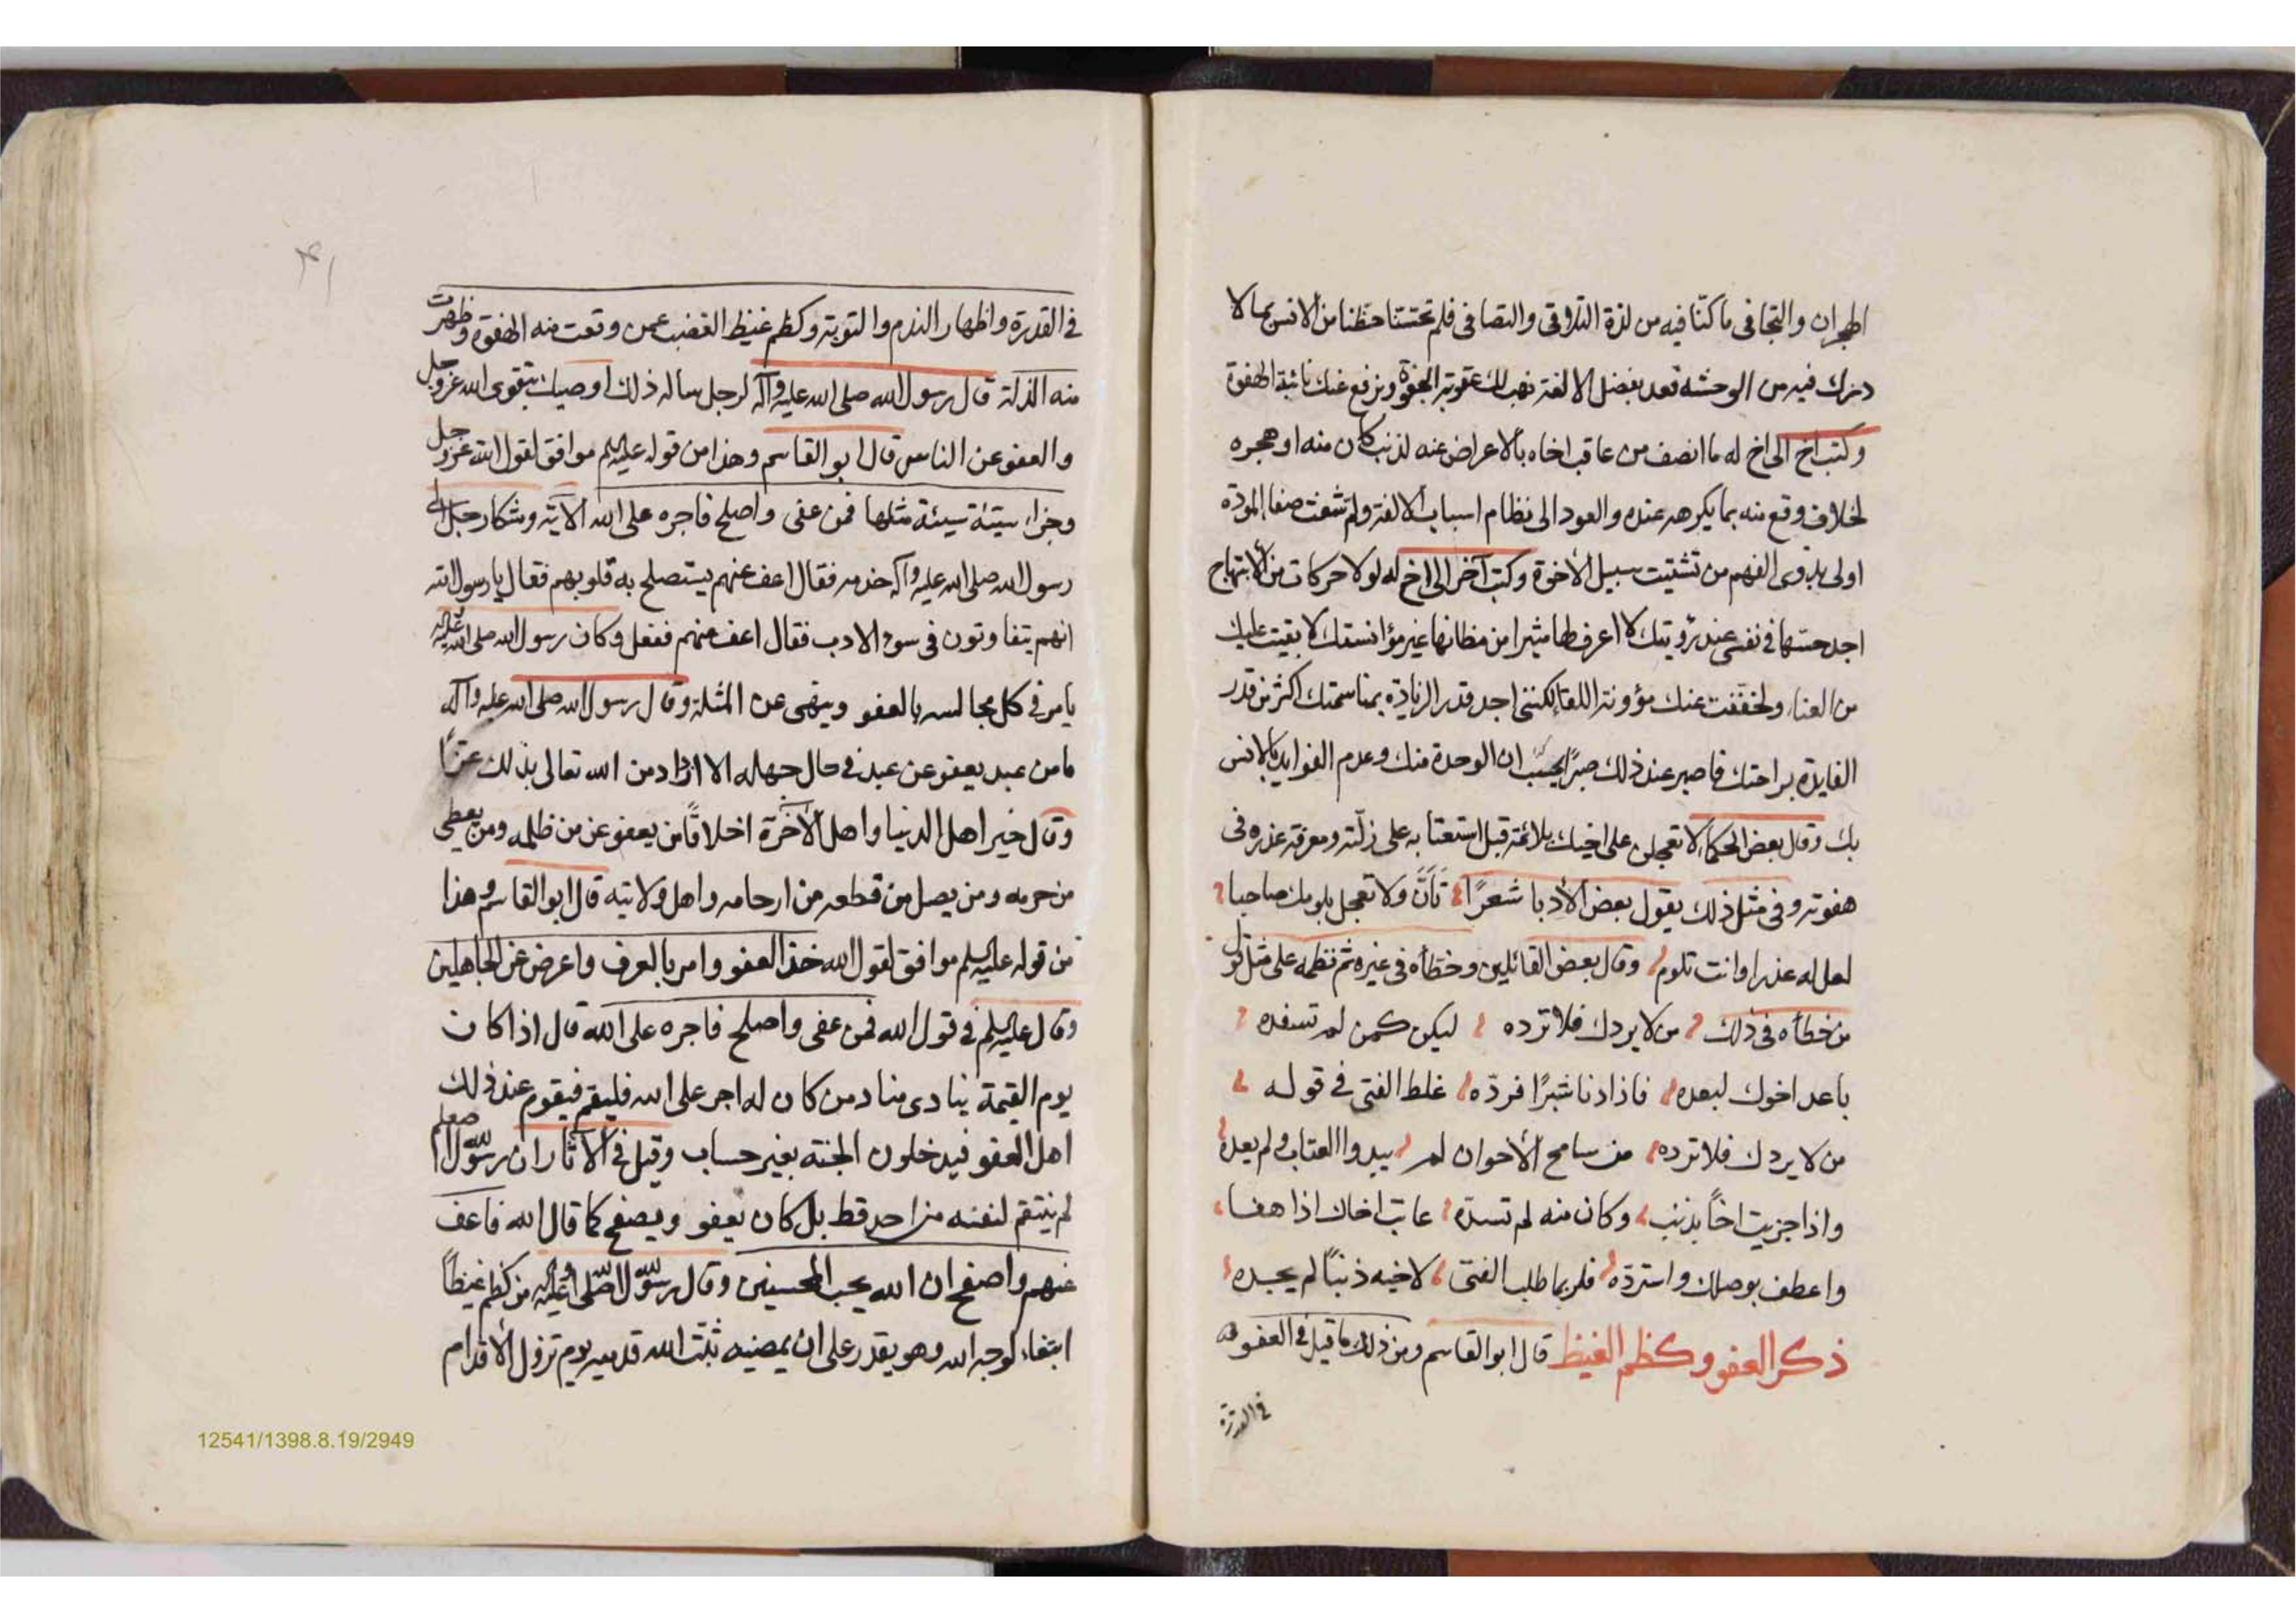 الهجران والتجافى ما كنّا فيه من لذة التلاقى والتصافى فلم تحتسنا حظنا من الانس بما لا
درك فيه من الوحشه تعد بفضل الالفة نهب لك عقوبة الجفوة ونرفع عنك نائبة الهفوة
وكتب اخ الى اخ له ما انصف من عاقب اخاه بالاعراض عنه لذنب كان منه او هجره
لخلاف وقع منه بما يكرهه عنده والعود الى نظام اسباب الالفة ولم شعث صفا المودّة
اولى بذوى الفهم من تشتيت سبيل الأخوة وكتب آخر الى اخ له لولا حركات من الابتهاج
اجد حسّها فى نفسى عند رؤيتك لا اعرف لها مثيرا من مظانها غير مؤانستك لا بقيت عليك
من العنا، ولخففت عنك مؤونة اللقا لكننى اجد قدر الزيادة بمناسمتك اكثر من قدر
الفايدة براحتك فاصبر عند ذلك صبرًا يحسب ان الوحدة منك وعدم الفوايد بالانس
بك وقال بعض الحكما لا تعجلن على اخيك بلائمة قبل استعتابه على زلّته ومعرفة عذره فى
هفوته وفى مثل ذلك يقول بعض الأدبا شعرًا تَأَنَّ ولا تعجل بلومك صاحبا
لعل له عذرا وانت تلوم وقال بعض القائلين وخطأه فى غيره ثم نظمه على مثل قول
من خطأه فى ذلك من لا يردك فلا ترده ليكن كمن لم تسفده
باعد اخوك لبعده فاذا دنا شبرًا فردّه غلط الفتى فى قوله
من لا يردك فلا ترده من سامح الأخوان لم يبدوا العتاب ولم يعده
واذا جزيت اخاً بذنب وكان منه لم تسدّه عاتب اخاك اذا هفا
واعطف بوصلك واستردّه فلربما طلب الفتى لاخيه ذنباً لم يجده
ذكر العفو وكظم الغيظ قال ابو القاسم ومن ذلك ما قيل فى العفو
فى القدرة
٤١
فى القدرة واظهار الندم والتوبة وكظم غيظ الغضب عمن وقعت منه الهفوة وظهرت
منه الذلة قال رسول الله صلى الله عليه وآله لرجل ساله ذلك اوصيك بتقوى الله عز وجل
والعفو عن الناس قال ابو القاسم وهذا من قوله عليه السلم موافق لقول الله عز وجل
وجزا، سيئة سيئة مثلها فمن عفى واصلح فاجره على الله الآية وشكا رجل الى
رسول الله صلى الله عليه وآله خدمه فقال اعف عنهم يستصلح به قلوبهم فقال يا رسول الله
انهم يتفاوتون فى سوء الادب فقال اعف عنهم ففعل وكان رسول الله صلى الله عليه
يامر فى كل مجالسه بالعفو وينهى عن المثلة وقال رسول الله صلى الله عليه وآله
ما من عبد يعفو عن عبد فى حال جهله الا ازداد من الله تعالى بذلك عزًّا
وقال خير اهل الدنيا واهل الآخرة اخلاقًا من يعفو عن من ظلمه ومن يعطى
من حرمه ومن يصل من قطعه من ارحامه واهل ولايته قال ابو القاسم وهذا
من قوله عليه السلم موافق لقول الله خذ العفو وامر بالعرف واعرض عن الجاهلين
وقال عليه السلم فى قول الله فمن عفى واصلح فاجره على الله قال اذا كان
يوم القيمة ينادى مناد من كان له اجر على الله فليقم فيقوم عند ذلك
اهل العفو فيدخلون الجنة بغير حساب وقيل فى الآثار ان رسول الله صلعم
لم ينتقم لنفسه من احد قط بل كان يعفو ويصفح كما قال الله فاعف
عنهم واصفح ان الله يحب المحسنين وقال رسول الله صلى الله عليه وآله من كظم غيظاً
ابتغاء لوجه الله وهو يقدر على ان يمضيه ثبّت الله قدميه يوم تزول الأقدام
12541/1398.8.19/2949